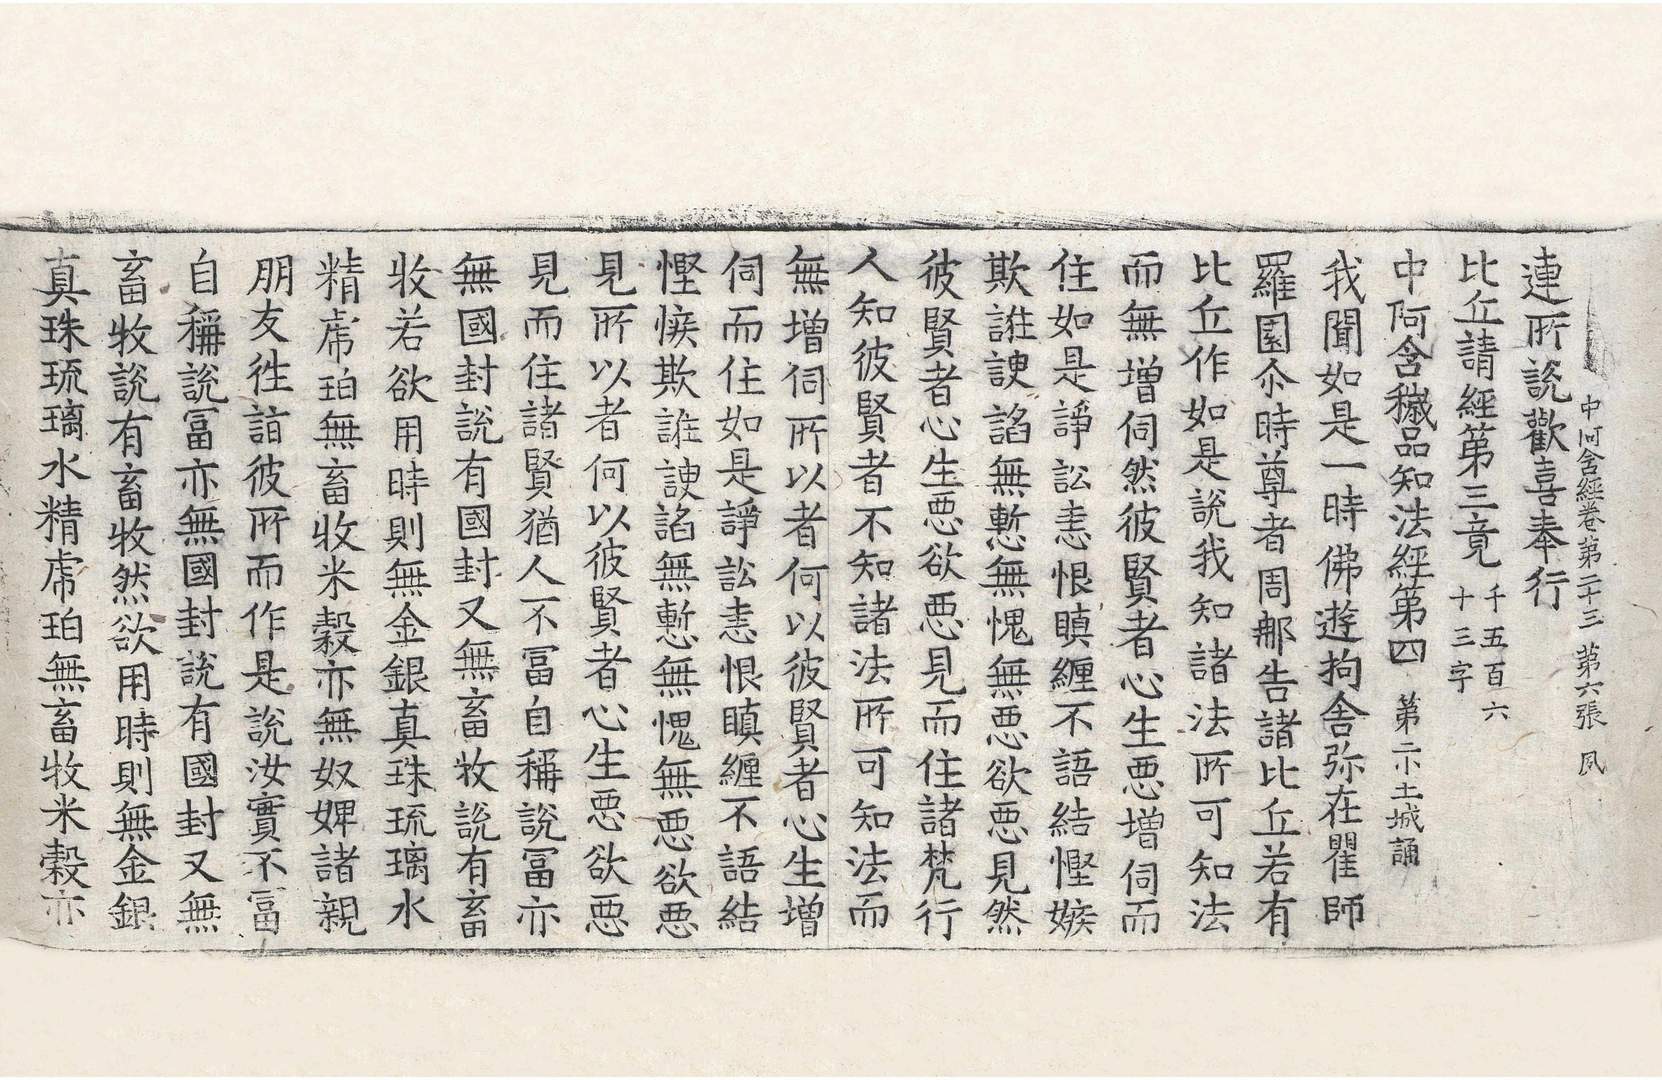 中阿含經卷第二十三　第六張　凤
連所說歡喜奉行
比丘請經第三竟　千五百六十三字
中阿含穢品知法經第四　第二小土城誦
我聞如是一時佛遊拘舍弥在瞿師
羅園尒時尊者周那告諸比丘若有
比丘作如是說我知諸法所可知法
而無增伺然彼賢者心生惡增伺而
住如是諍訟恚恨瞋纏不語結慳嫉
欺誑諛諂無慙無愧無惡欲惡見然
彼賢者心生惡欲惡見而住諸梵行
人知彼賢者不知諸法所可知法而
無增伺所以者何以彼賢者心生增
伺而住如是諍訟恚恨瞋纏不語結
慳嫉欺誑諛諂無慙無愧無惡欲惡
見所以者何以彼賢者心生惡欲惡
見而住諸賢猶人不冨自稱說冨亦
無國封說有國封又無畜牧說有畜
牧若欲用時則無金銀真珠琉璃水
精虎珀無畜牧米穀亦無奴婢諸親
朋友往詣彼所而作是說汝實不冨
自稱說冨亦無國封說有國封又無
畜牧說有畜牧然欲用時則無金銀
真珠琉璃水精虎珀無畜牧米穀亦